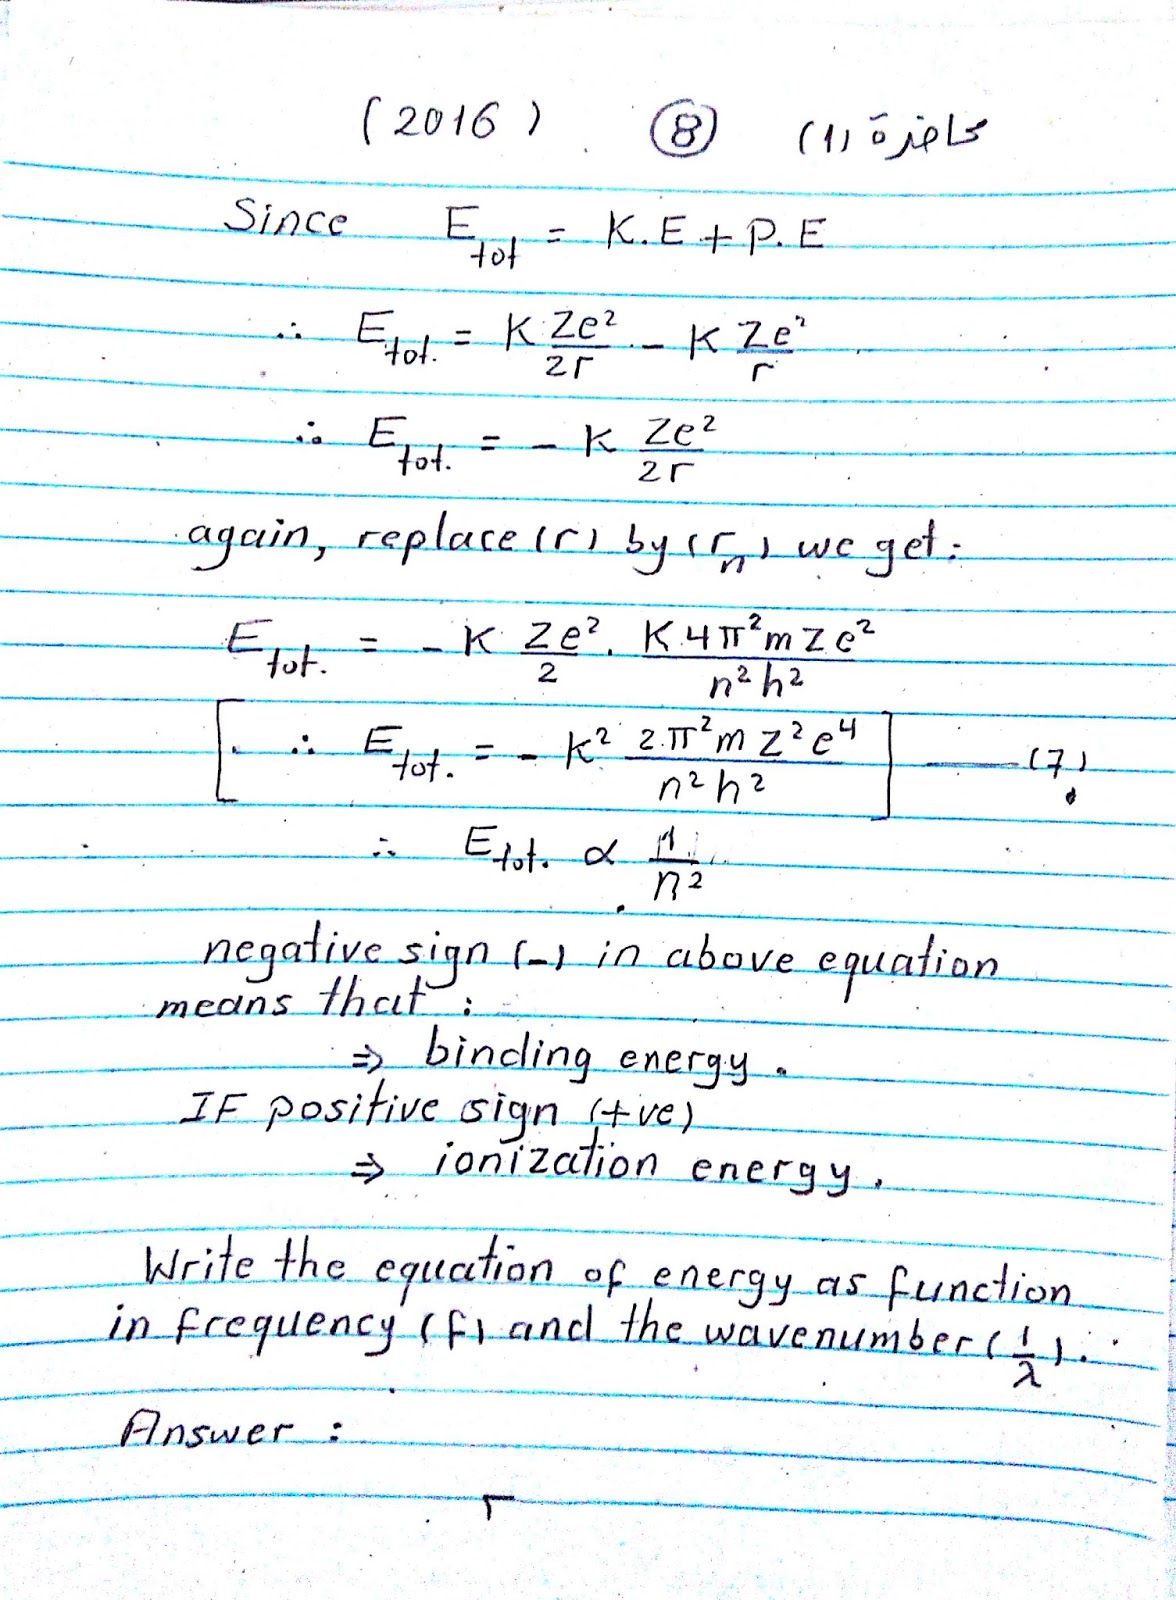 (2016) 8 محاضرة (1)
Since E_tot = K.E + P.E
∴ E_tot. = K Ze²/2r - K Ze²/r
∴ E_tot. = - K Ze²/2r
again, replace (r) by (r_n) we get:
E_tot. = - K Ze²/2 . K.4π²mZe²/n²h²
∴ E_tot. = - K² 2π²mZ²e⁴/n²h² —— (7)
∴ E_tot. ∝ 1/n²
negative sign (-) in above equation
means that :
⇒ binding energy.
IF positive sign (+ve)
⇒ ionization energy.
Write the equation of energy as function
in frequency (f) and the wavenumber (1/λ).
Answer :